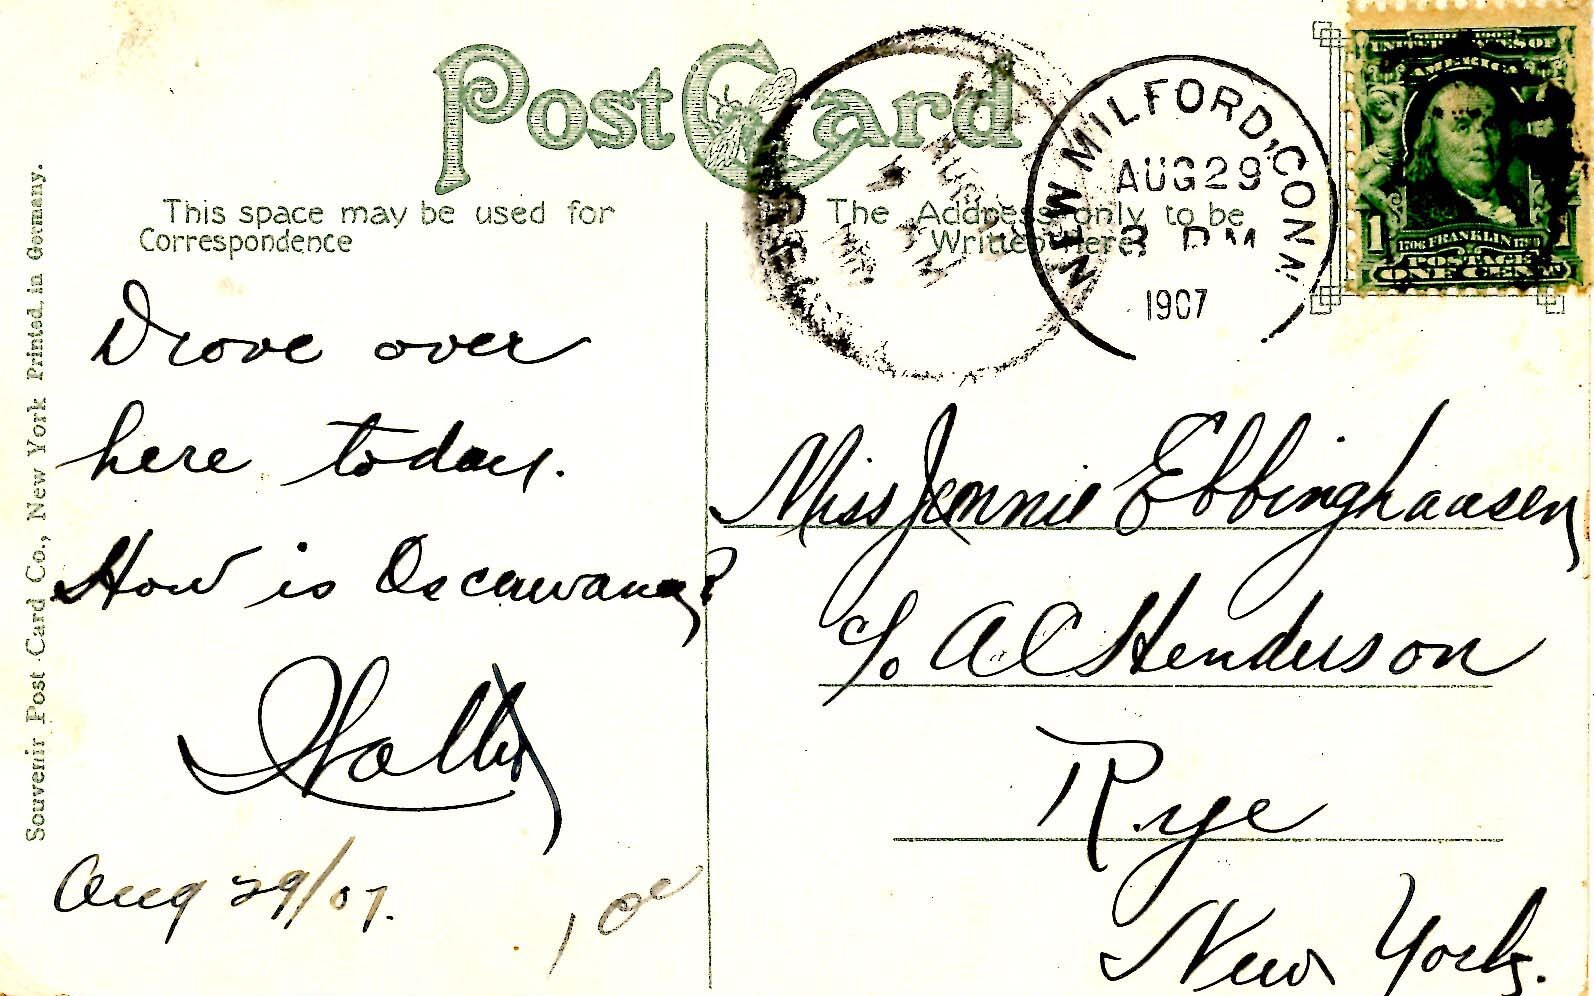 Post Card
This space may be used for
Correspondence
The Address only to be
Written Here.
NEW MILFORD, CONN
AUG 29
PM
1907
UNITED STATES OF
AMERICA
1 1706 FRANKLIN 1790 1
POSTAGE
ONE CENT
Drove over
here today.
How is Oscawana?
Aug 29/07.
Miss Jennie Ebbinghausen
c/o A C Henderson
Rye
New York.
Souvenir Post Card Co., New York Printed in Germany.